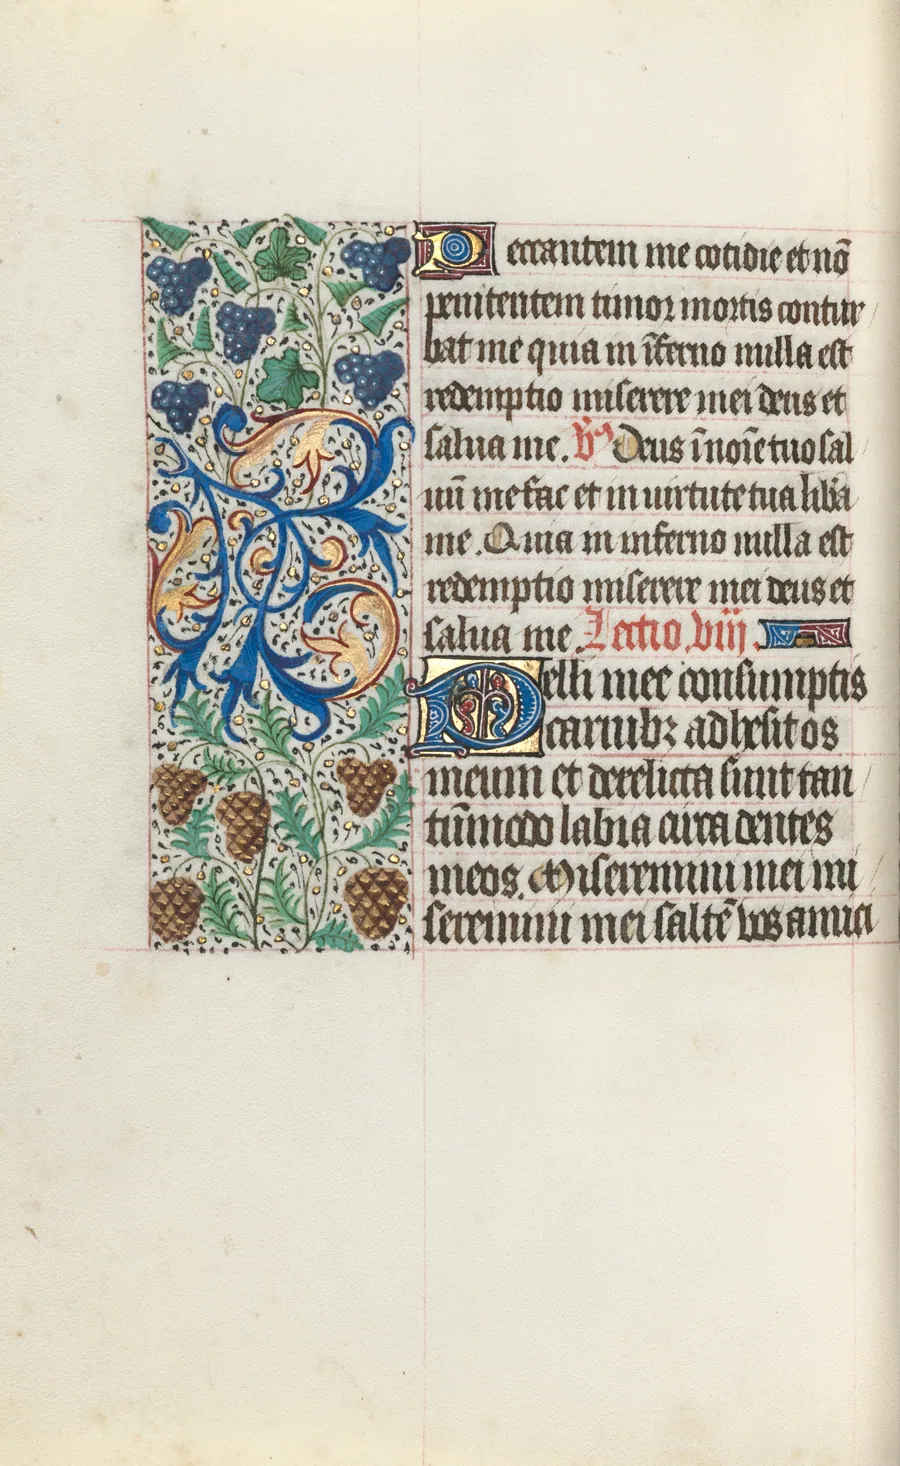 Peccantem me cotidie et nō
penitentem timor mortis contur
bat me quia in īferno nulla est
redemptio miserere mei deus et
salua me. V̉s Deus ī noīe tuo sal
uū me fac et in uirtute tua liba
me. Quia in inferno nulla est
redemptio miserere mei deus et
salua me. Lectio viii.
Pelli mee consumptis
carnibꝫ adhesit os
meum et derelicta sunt tan
tūmodo labia circa dentes
meos. Miseremini mei mi
seremini mei saltē vos amici